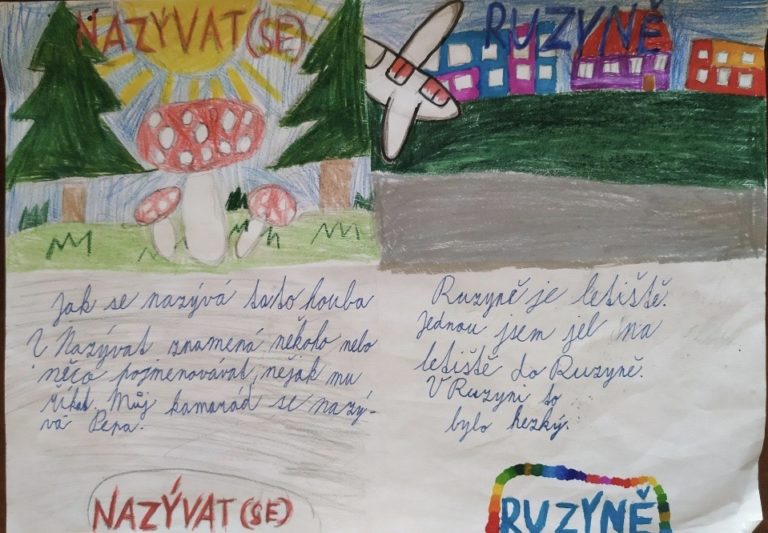 NAZÝVAT(SE)
Jak se nazývá tato houba
? Nazývat znamená někoho nebo
něco pojmenovávat, nějak mu
říkat. Můj kamarád se nazý-
vá Pepa.
NAZÝVAT(SE)
RUZYNĚ
Ruzyně je letiště.
Jednou jsem jel na
letiště do Ruzyně.
V Ruzyni to
bylo hezký.
RUZYNĚ